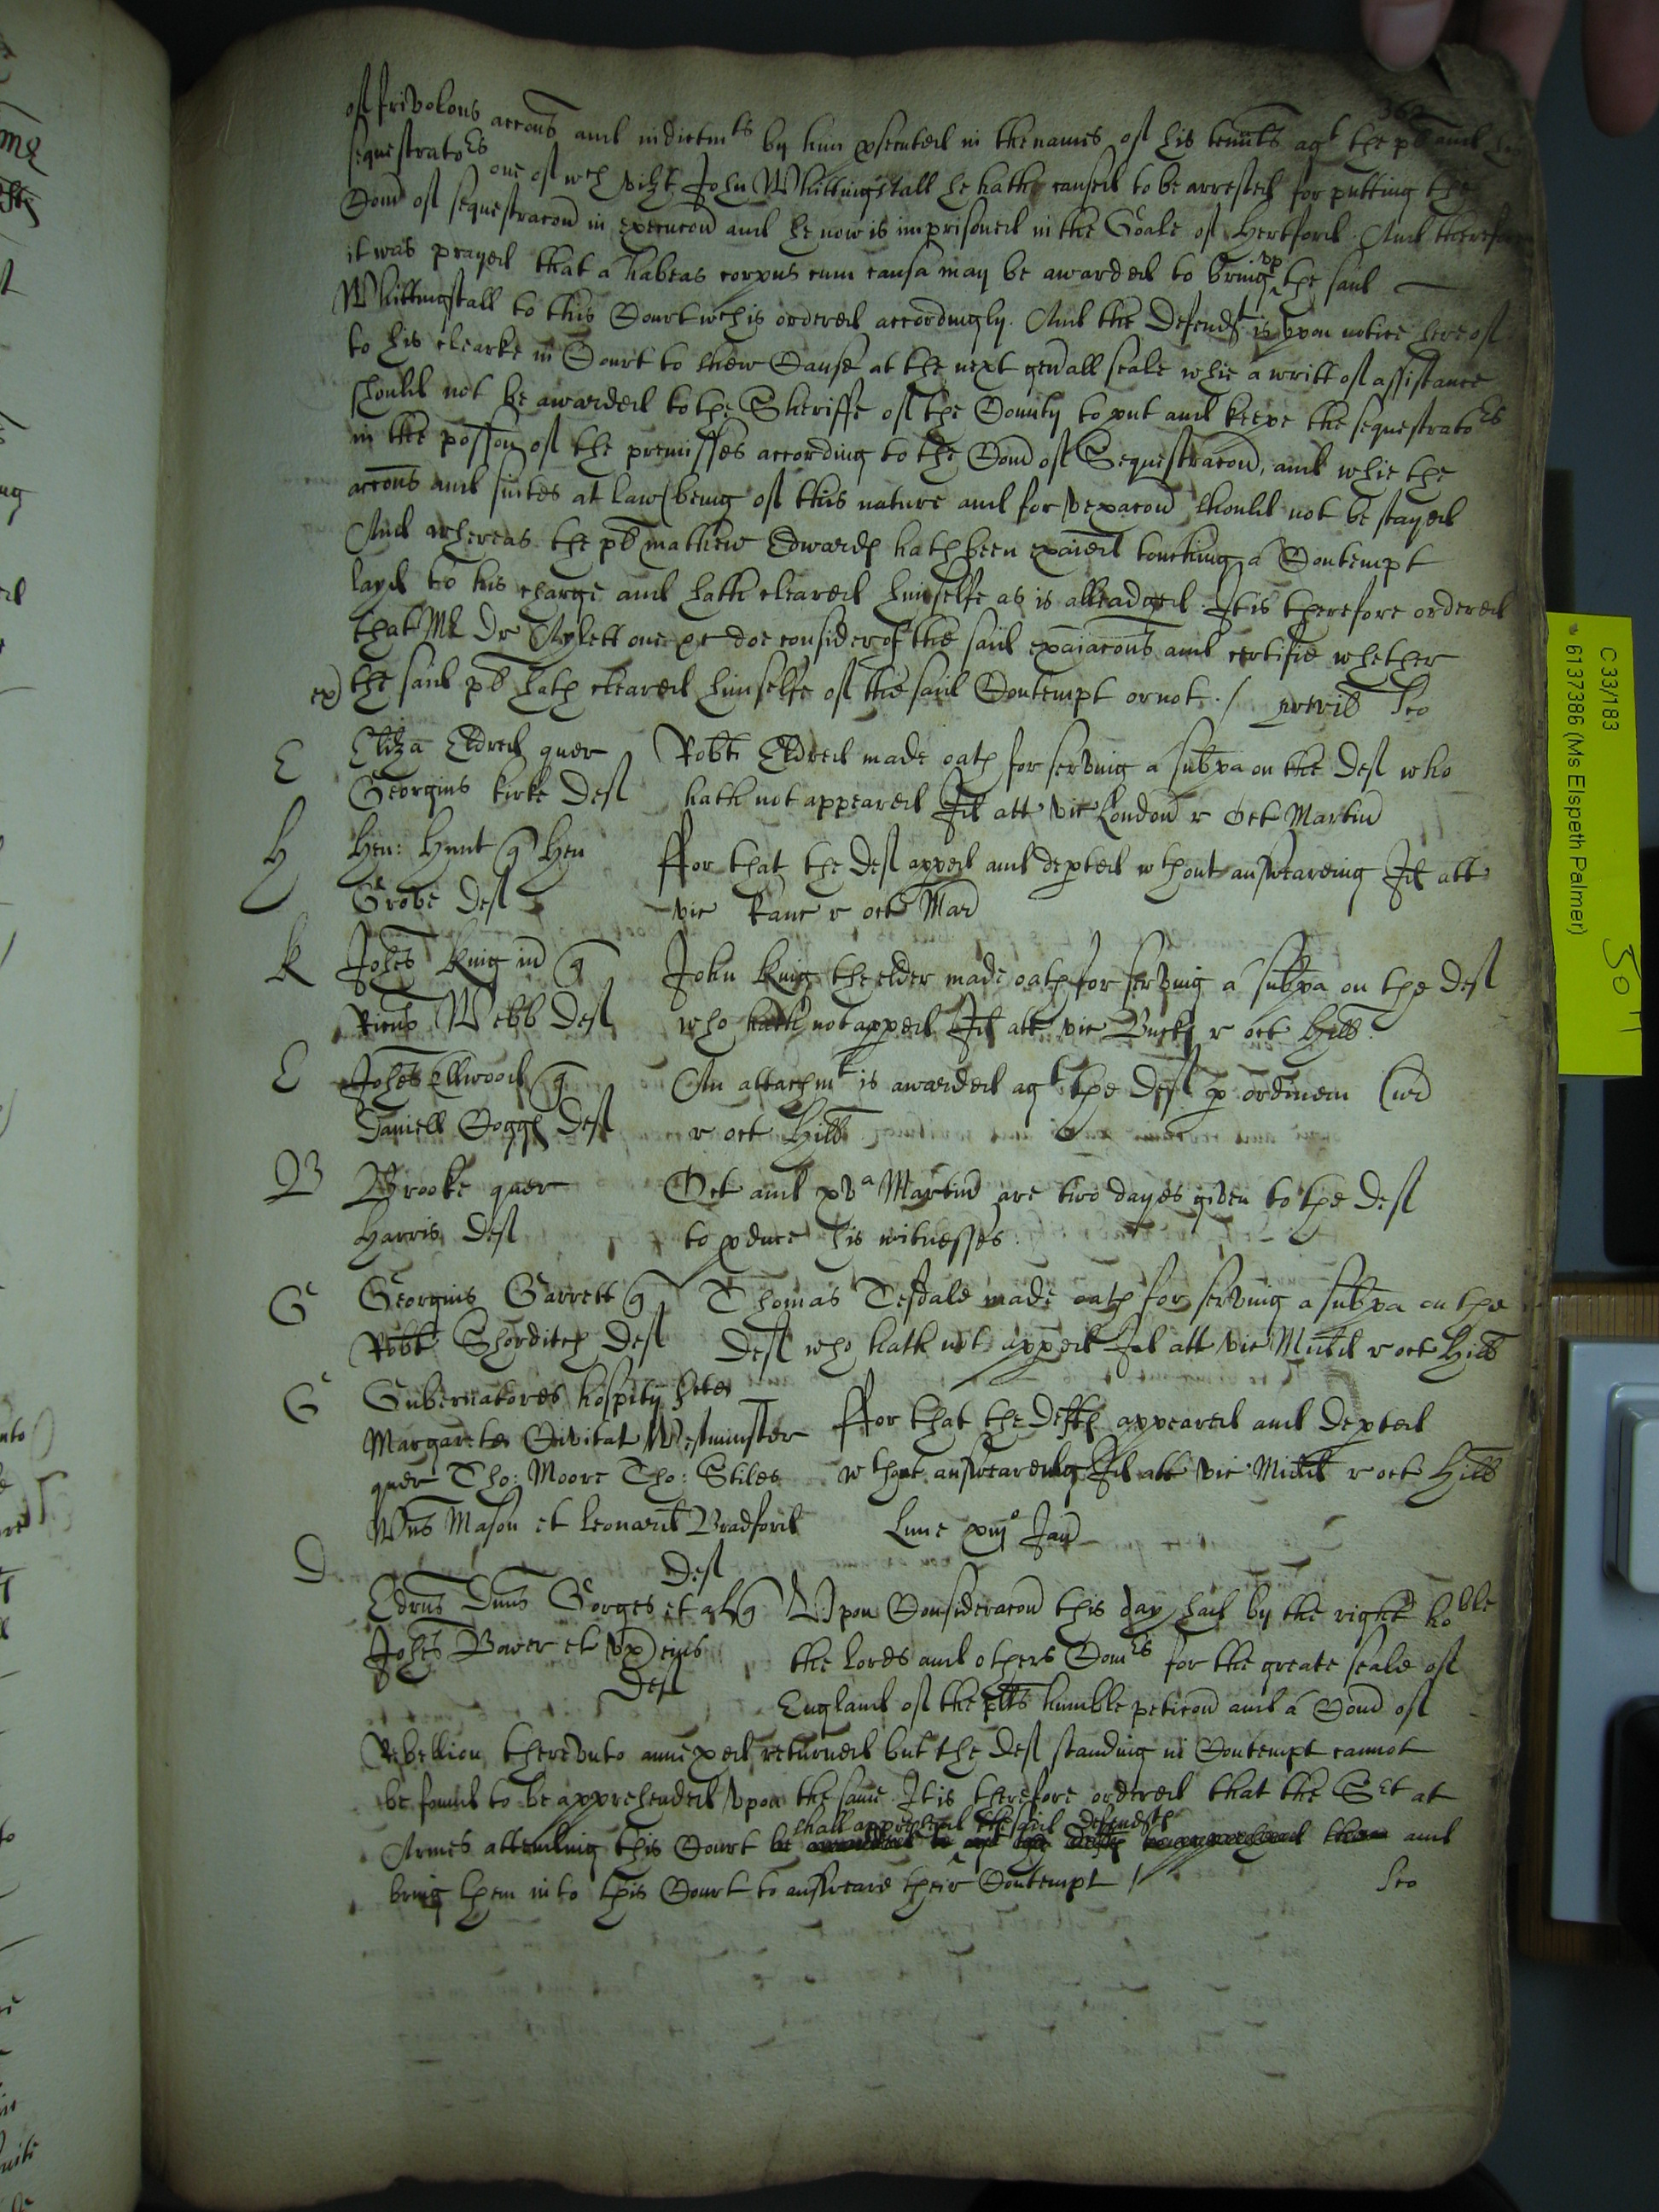 362
of frivolous accons and indictmts by him psecuted in the names of his tennts agt the pl and his
sequestrators one of wch vizt John Whittingstall he hath caused to be arrested for putting the
Comd of sequestracon in execucon and he now is imprisoned in the Goale of Hertford. And therefore
it was prayed that a habeas corpus cum causa may be awarded to bring up the said
Whittingstall to this Court wch is ordered accordingly. And the Defendt is upon notice hereof
to his clearke in Court to shew Cause at the next genall seale whie a writt of assistance
should not be awarded to the Sheriffe of the County to put and keepe the sequestrators
in the possion of the premisses according to the Comd of Sequestracon, and whie the
accons and suites at law being of this nature and for vexacon should not be stayed
And whereas the pl mathew Edwards hath been exaied touching a Contempt
layd to his charge and hath cleared himselfe as is alleadged. It is therefore ordered
that Mr Dr Aylett one &c doe consider of the said exaiacons and certifie whether
ex) the said pl hath cleared himselfe of the said Contempt or not. /
E Eliza Eldred quer Robt Eldred made oath for serving a subpa on the Def who
Georgius kirke Def hath not appeared Id att vic London r Oct Martin
H Hen: Hunt q Hen ffor that the Def apped and depted wthout answeareing Id att
Grove Def vic kanc r oct Mar
K Johes King iu q John King the elder made oath for serving a subpa on the Def
Ricus Webb Def who hath not apped Id att vic Bucks r oct Hill
E Johes Ellwood q An attachmt is awarded agt the Def p ordinem
Daniell Coggs Def r oct Hill
B Brooke quer Oct and xva Martin are two dayes given to the Def
Harris Def to pduce his witnesses.
G Georgius Garrett q Thomas Tesdale made oath for serving a subpa on the
Robt Shorditch Def Def who hath not apped Id att vic Midd r oct Hill
G Gubernatores hospitij
Margarete Civitat Westminster ffor that the Defts appeared and depted
quer Tho: Moore Tho: Stiles wthout answeareing Id att vic Midd r oct Hill
Wms Mason et Leonard Bradford Lune xiijo Jan
D Def
Edrus Dnus Gorges et al q Upon Consideracon this day had by the right hoble
Johes Bower et Ux eius the Lords and others Comrs for the greate seale of
Def England of the plts humble peticon and a Comd of
Rebellion thereunto annexed returned but the Def standing in Contempt cannot
be found to be apprehended upon the same. It is therefore ordered that the Sert at
shall apprehend the said defendts
Armes attending this Court be and
bring them in to this Court to answeare their Contempt /
C 33/183
6137386 (Ms Elspeth Palmer)